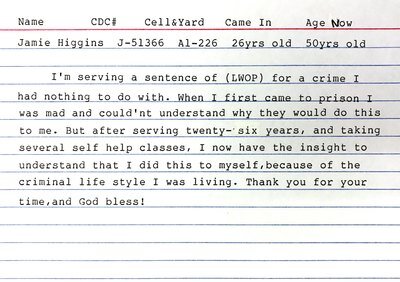 Name CDC# Cell&Yard Came In Age Now
Jamie Higgins J-51366 A1-226 26yrs old 50yrs old
I'm serving a sentence of (LWOP) for a crime I
had nothing to do with. When I first came to prison I
was mad and could'nt understand why they would do this
to me. But after serving twenty-six years, and taking
several self help classes, I now have the insight to
understand that I did this to myself,because of the
criminal life style I was living. Thank you for your
time,and God bless!